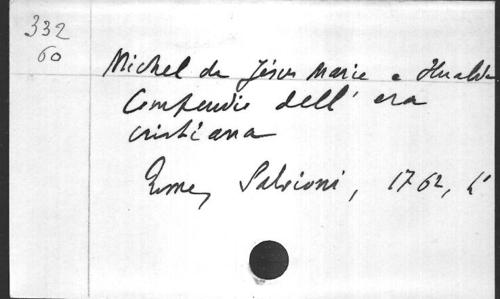 332
60
Michel de Jésus Marie e Hualde
Compendio dell' era
cristiana
Rome, Salvioni, 1762, 4°